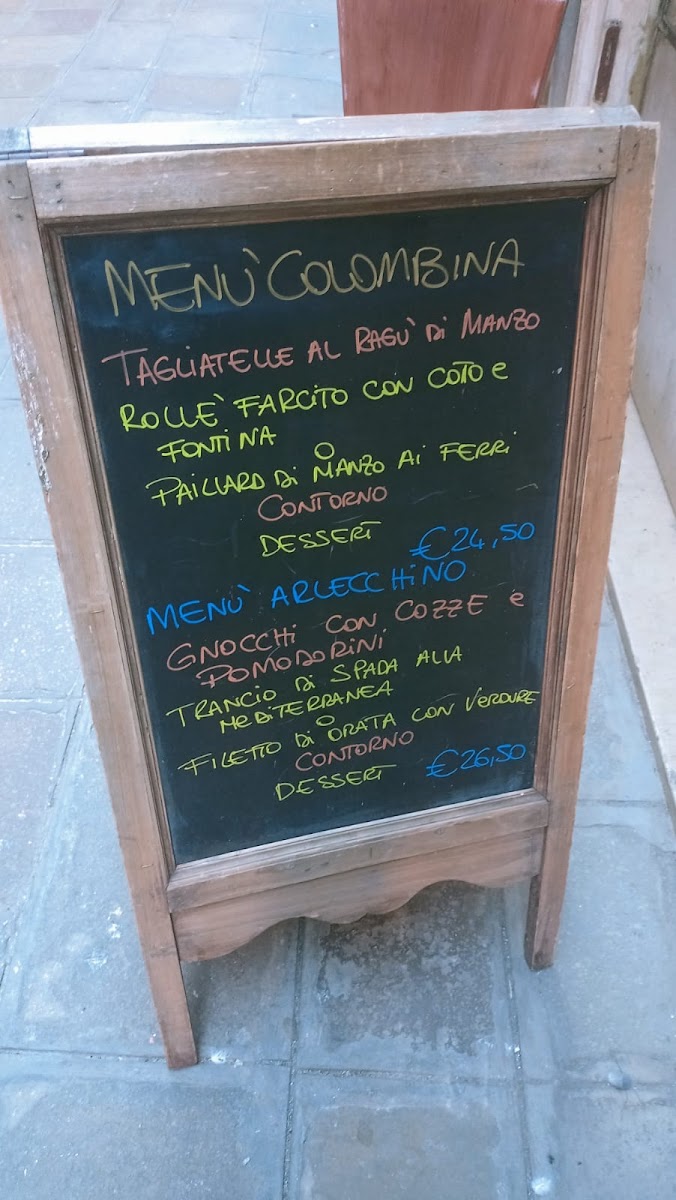 MENÙ COLOMBINA
TAGLIATELLE AL RAGÙ DI MANZO
ROLLÈ FARCITO CON COTTO e
FONTINA
O
PAILLARD DI MANZO AI FERRI
CONTORNO
DESSERT
€24,50
MENÙ ARLECCHINO
GNOCCHI CON COZZE e
POMODORINI
TRANCIO DI SPADA ALLA
MEDITERRANEA
O
FILETTO DI ORATA CON VERDURE
CONTORNO
DESSERT €26,50